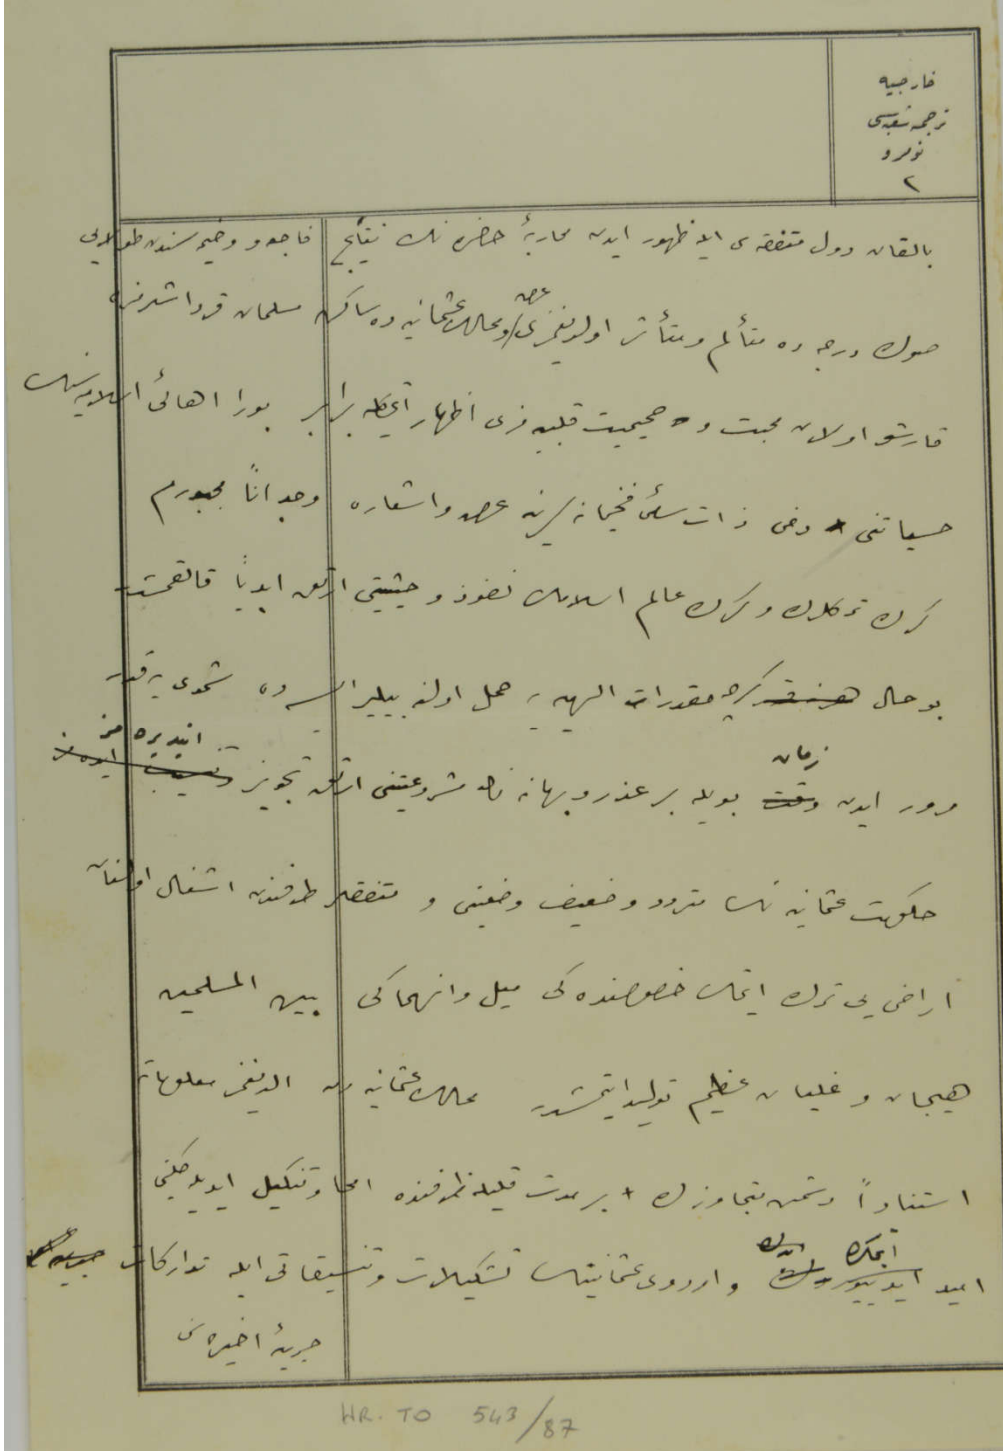 خارجيه
ترجمه شعبه‌سى
نومرو
٢
بالقان دول متفقه‌سى ايله ظهور ايدن محاربهٔ حاضره نك نتايج فاجعه و وخيمه‌سندن طولايى
صوك درجه ده متألم و متأثر اولديغمزى عرض و ممالك عثمانيه ده ساكن مسلمان قرداشلرمزه
قارشو اولان محبت و صميميت قلبيه مزى اظهار ايتمكله برابر بورا اهالئ اسلاميه‌سنك
حسياتنى دخى ذات سامئ فخيمانه‌لرينه عرض و اشعاره وجداناً مجبورم
ترك تركلرك و كرك عالم اسلامك نفوذ و حيثيتى آرتق ابدياً قالقمشدر
بو حال هر نه قدر كرچه مقدرات الهيه يه حمل اولنه بيلير ايسه ده شمدى يه قدر
مرور ايدن وقت زمان بويله بر عذر و بهانه نك مشروعيتنى آرتق تجويز ايتديره مز
حكومت عثمانيه نك متردد و ضعيف وضعيتى و متفقلر طرفندن اشغال اولنان
اراضى يى ترك ايتمك خصوصنده كى ميل و انهماكى بين المسلمين
هيجان و غليان عظيم توليد ايتمشدر ممالك عثمانيه دن آلديغمز معلوماته
استناداً دشمن متجاوزك بر مدت قليله ظرفنده امحا و تنكيل ايديله جكنى
اميد ايتمكده ايدك و اردوى عثمانينك تشكيلات و تنسيقاتى ايله تداركات
حربيهٔ اخيره‌سى
HR. TO 543/87